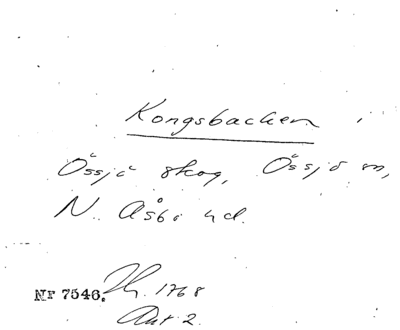 Kongsbacken
Össjö skog, Össjö sn,
N. Åsbo hd.
Nr 7546. 1768
Akt 2.